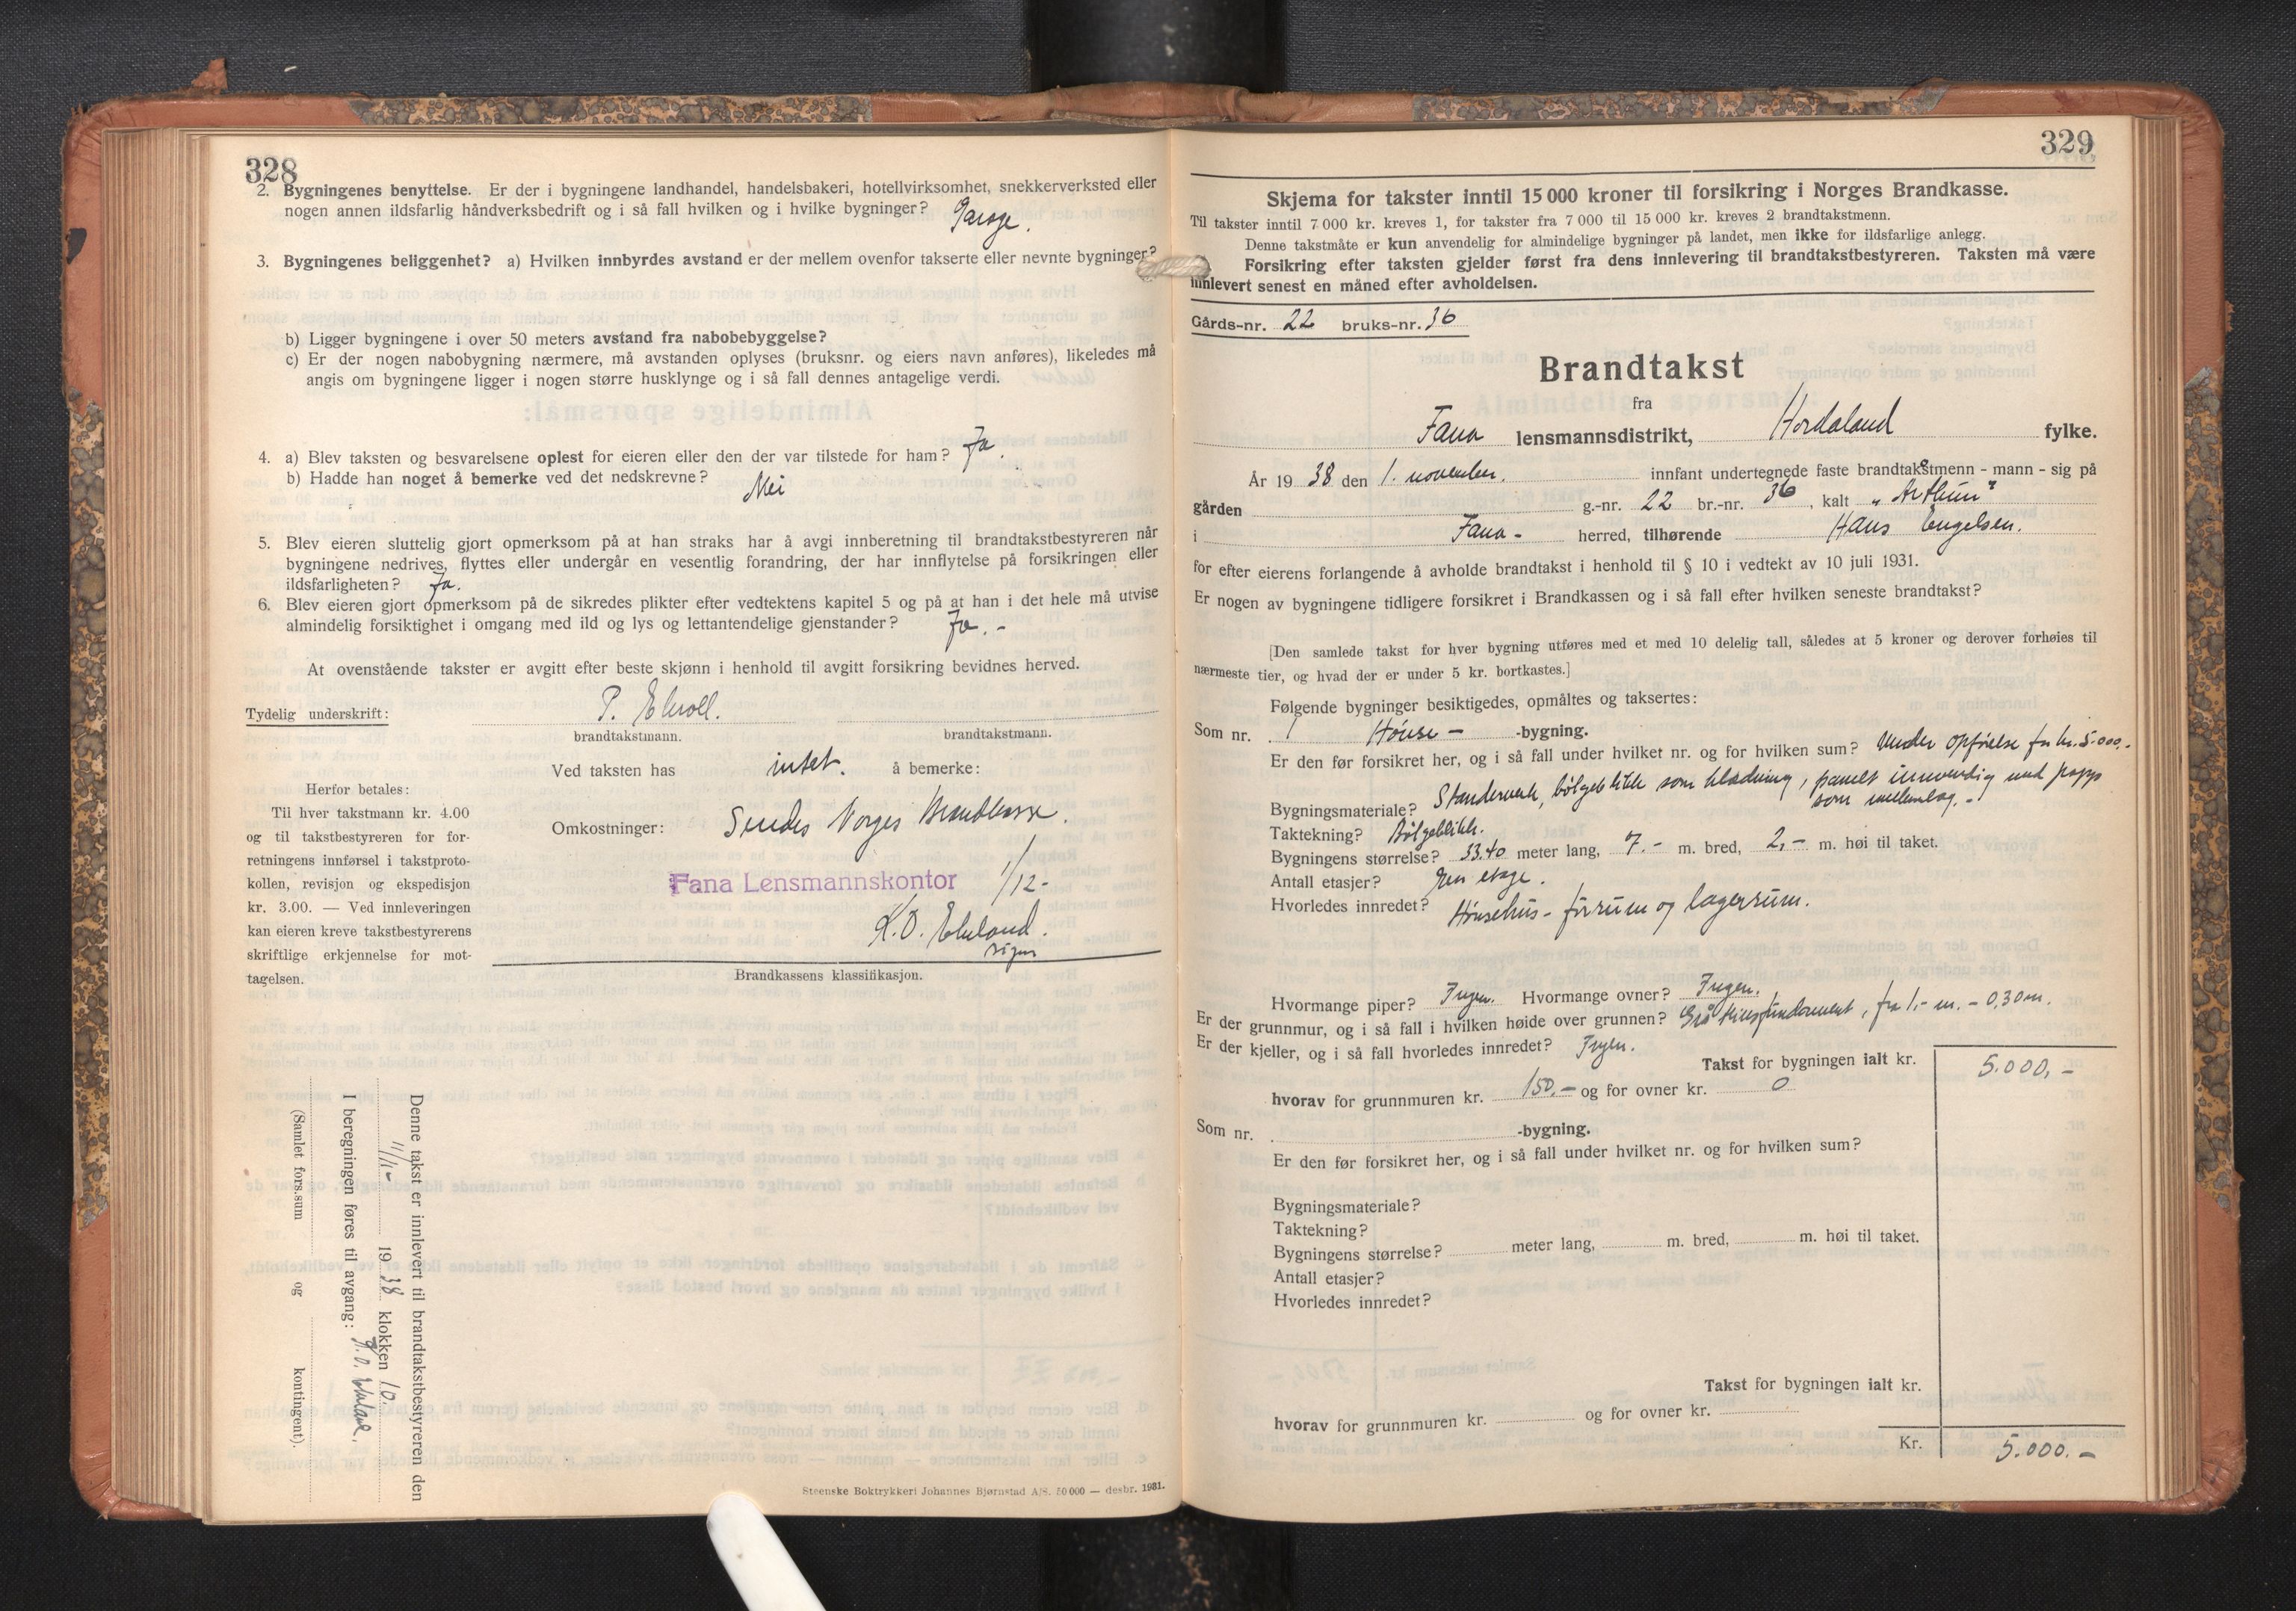 328
2. Bygningenes benyttelse. Er der i bygningene landhandel, handelsbakeri, hotellvirksomhet, snekkerverksted eller
nogen annen ildsfarlig håndverksbedrift og i så fall hvilken og i hvilke bygninger? Garage.
3. Bygningenes beliggenhet? a) Hvilken innbyrdes avstand er der mellem ovenfor takserte eller nevnte bygninger?
b) Ligger bygningene i over 50 meters avstand fra nabobebyggelse?
c) Er der nogen nabobygning nærmere, må avstanden oplyses (bruksnr. og eiers navn anføres), likeledes må
angis om bygningene ligger i nogen større husklynge og i så fall dennes antagelige verdi.
4. a) Blev taksten og besvarelsene oplest for eieren eller den der var tilstede for ham? Ja.
b) Hadde han noget å bemerke ved det nedskrevne? Nei
5. Blev eieren sluttelig gjort opmerksom på at han straks har å avgi innberetning til brandtakstbestyreren når
bygningene nedrives, flyttes eller undergår en vesentlig forandring, der har innflytelse på forsikringen eller
ildsfarligheten? Ja.
6. Blev eieren gjort opmerksom på de sikredes plikter efter vedtektens kapitel 5 og på at han i det hele må utvise
almindelig forsiktighet i omgang med ild og lys og lettantendelige gjenstander? Ja. -
At ovenstående takster er avgitt efter beste skjønn i henhold til avgitt forsikring bevidnes herved.
Tydelig underskrift: P. Ekroll.
brandtakstmann. brandtakstmann.
Ved taksten has intet. å bemerke:
Herfor betales:
Til hver takstmann kr. 4.00
og til takstbestyreren for for-
retningens innførsel i takstproto-
kollen, revisjon og ekspedisjon
kr. 3.00. — Ved innleveringen
kan eieren kreve takstbestyrerens
skriftlige erkjennelse for mot-
tagelsen.
Omkostninger: Sendes Norges Brandkasse.
Fana Lensmannskontor 1/12-
K.O. Ekeland.
sign
Brandkassens klassifikasjon.
Denne takst er innlevert til brandtakstbestyreren den
11/11- 1938 klokken 10.
I beregningen føres til avgang: K.O. Ekeland.
(Samlet fors.sum og kontingent).
Steenske Boktrykkeri Johannes Bjørnstad A/S. 50 000 — desbr. 1931.
329
Skjema for takster inntil 15 000 kroner til forsikring i Norges Brandkasse.
Til takster inntil 7 000 kr. kreves 1, for takster fra 7 000 til 15 000 kr. kreves 2 brandtakstmenn.
Denne takstmåte er kun anvendelig for almindelige bygninger på landet, men ikke for ildsfarlige anlegg.
Forsikring efter taksten gjelder først fra dens innlevering til brandtakstbestyreren. Taksten må være
innlevert senest en måned efter avholdelsen.
Gårds-nr. 22 bruks-nr. 36
Brandtakst
fra
Fana lensmannsdistrikt, Hordaland fylke.
År 1938 den 1. november. innfant undertegnede faste brandtakstmenn - mann - sig på
gården g.-nr. 22 br.-nr. 36, kalt
i Fana - herred, tilhørende Hans Engelsen.
for efter eierens forlangende å avholde brandtakst i henhold til § 10 i vedtekt av 10 juli 1931.
Er nogen av bygningene tidligere forsikret i Brandkassen og i så fall efter hvilken seneste brandtakst?
[Den samlede takst for hver bygning utføres med et med 10 delelig tall, således at 5 kroner og derover forhøies til
nærmeste tier, og hvad der er under 5 kr. bortkastes.]
Følgende bygninger besiktigedes, opmåltes og taksertes:
Som nr. 1 Hønse - -bygning.
Er den før forsikret her, og i så fall under hvilket nr. og for hvilken sum? Under opførelse for kr. 5.000.-
Bygningsmateriale? Standerverk, bølgeblikk som klædning, panelt innvendig med papp
som mellemlag. -
Taktekning? Bølgeblikk.
Bygningens størrelse? 33.40 meter lang, 7.- m. bred, 2,- m. høi til taket.
Antall etasjer? Een etage.
Hvorledes innredet? Hønsehus - fôrrum og lagerrum.
Hvormange piper? Ingen. Hvormange ovner? Ingen.
Er der grunnmur, og i så fall i hvilken høide over grunnen? Gråstensfundament, fra 1,- m. - 0.30 m.
Er der kjeller, og i så fall hvorledes innredet? Ingen.
Takst for bygningen ialt kr. 5.000,-
hvorav for grunnmuren kr. 150.- og for ovner kr. 0
Som nr. -bygning.
Er den før forsikret her, og i så fall under hvilket nr. og for hvilken sum?
Bygningsmateriale?
Taktekning?
Bygningens størrelse? meter lang, m. bred, m. høi til taket.
Antall etasjer?
Hvorledes innredet?
Takst for bygningen ialt kr.
hvorav for grunnmuren kr. og for ovner kr.
Kr. 5.000.-